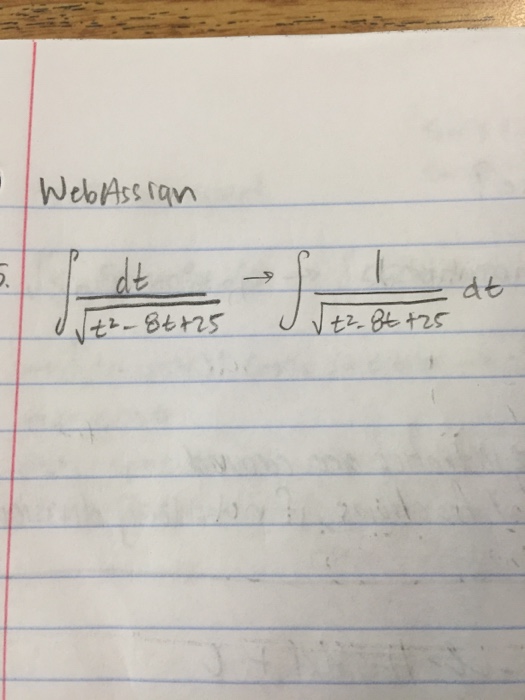 WebAssign
5. ∫ dt / √(t² - 8t + 25) → ∫ 1 / √(t² - 8t + 25) dt